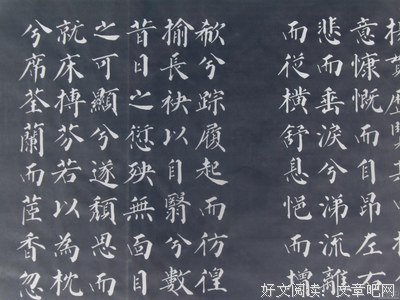 意慷慨而自昂左右
悲而垂淚兮涕流離
而從橫舒息悒而增
欷兮踪履起而彷徨
揄長袂以自翳兮數
昔日之愆殃無面目
之可顯兮遂頹思而
就床摶芬若以為枕
兮席荃蘭而茝香忽
好文阅读:文章吧网